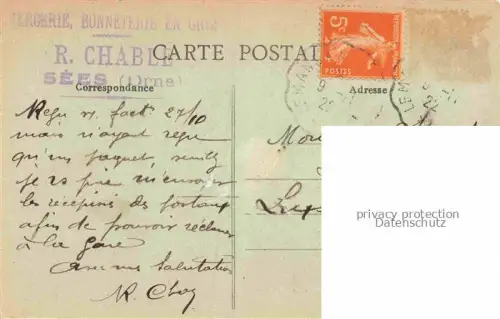 MERCERIE, BONNETERIE EN GROS
R. CHABLE
SÉES (Orne)
CARTE POSTALE
Correspondance
Adresse
5c
POSTES
LE MAN
LE M
Reçu v. fact. 27/10
mais n'ayant reçu
qu'un paquet, veuillez
je vs prie m'envoyer
les récépissés des
afin de pouvoir réclamer
à la gare
Avec mes Salutations
R. Chable
Mon
privacy protection
Datenschutz